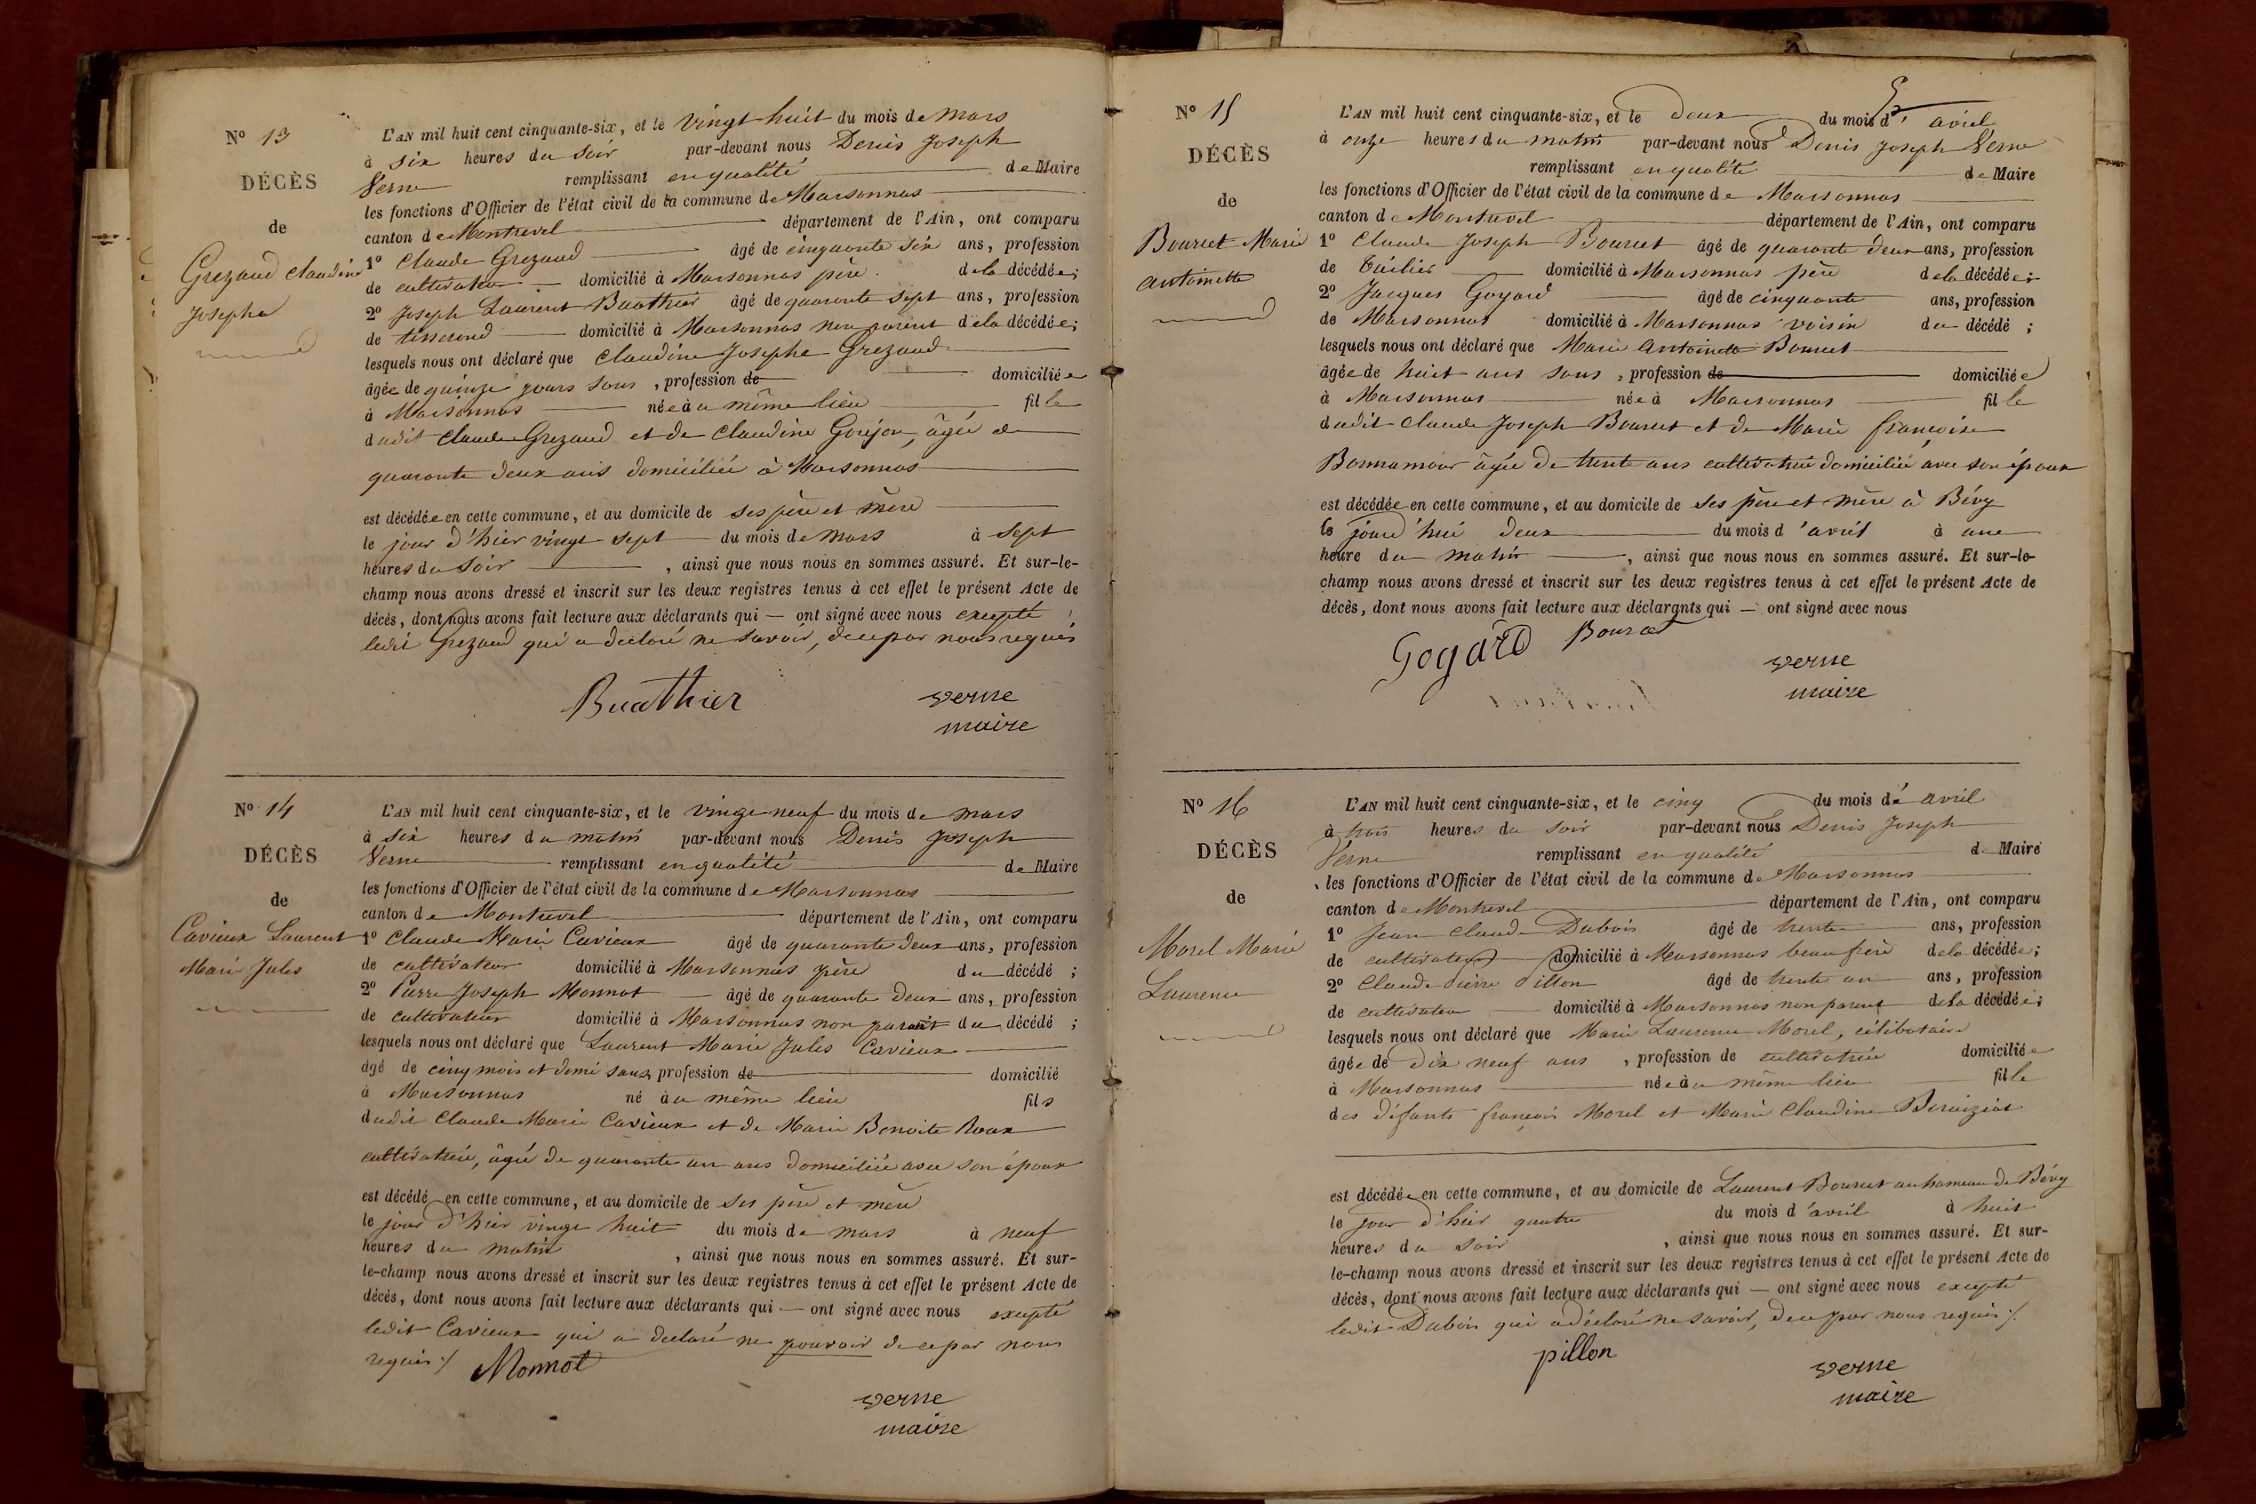 N° 13
DÉCÈS
de
Grezaud Claudine
Josephe
L'AN mil huit cent cinquante-six, et le vingt huit du mois de mars
à six heures du soir par-devant nous Denis Joseph
Verne remplissant en qualité de Maire
les fonctions d'Officier de l'état civil de la commune de Marsonnas
canton de Montrevel département de l'Ain, ont comparu
1° Claude Grezaud âgé de cinquante six ans, profession
de cultivateur domicilié à Marsonnas père de la décédée;
2° Joseph Laurent Buathier âgé de quarante sept ans, profession
de tisserand domicilié à Marsonnas non parent de la décédée;
lesquels nous ont déclaré que Claudine Josephe Grezaud
âgée de quinze jours sans, profession de domiciliée
à Marsonnas née au même lieu fille
dudit Claude Grezaud et de Claudine Goujon, âgée de
quarante deux ans domiciliée à Marsonnas
est décédée en cette commune, et au domicile de ses père et mère
le jour d'hier vingt sept du mois de mars à sept
heures du soir, ainsi que nous nous en sommes assuré. Et sur-le-
champ nous avons dressé et inscrit sur les deux registres tenus à cet effet le présent Acte de
décès, dont nous avons fait lecture aux déclarants qui — ont signé avec nous excepté
ledit Grezaud qui a déclaré ne savoir, de ce par nous requis
Buathier
verne
maire
N° 14
DÉCÈS
de
Cavieux Laurent
Marie Jules
L'AN mil huit cent cinquante-six, et le vingt neuf du mois de mars
à six heures du matin par-devant nous Denis Joseph
Verne remplissant en qualité de Maire
les fonctions d'Officier de l'état civil de la commune de Marsonnas
canton de Montrevel département de l'Ain, ont comparu
1° Claude Marie Cavieux âgé de quarante deux ans, profession
de cultivateur domicilié à Marsonnas père du décédé;
2° Pierre Joseph Monnot âgé de quarante deux ans, profession
de cultivateur domicilié à Marsonnas non parent du décédé;
lesquels nous ont déclaré que Laurent Marie Jules Cavieux
âgé de cinq mois et demi sans, profession de domicilié
à Marsonnas né au même lieu fils
dudit Claude Marie Cavieux et de Marie Benoite Roux
cultivatrice, âgée de quarante un ans domiciliée avec son époux
est décédé en cette commune, et au domicile de ses père et mère
le jour d'hier vingt huit du mois de mars à neuf
heures du matin, ainsi que nous nous en sommes assuré. Et sur-
le-champ nous avons dressé et inscrit sur les deux registres tenus à cet effet le présent Acte de
décès, dont nous avons fait lecture aux déclarants qui — ont signé avec nous excepté
ledit Cavieux qui a déclaré ne pouvoir de ce par nous
requis ./
Monnot
verne
maire
N° 15
DÉCÈS
de
Bourcet Marie
antoinette
L'AN mil huit cent cinquante-six, et le deux du mois d'avril
à onze heures du matin par-devant nous Denis Joseph Verne
remplissant en qualité de Maire
les fonctions d'Officier de l'état civil de la commune de Marsonnas
canton de Montrevel département de l'Ain, ont comparu
1° Claude Joseph Bourcet âgé de quarante deux ans, profession
de tuilier domicilié à Marsonnas père de la décédée;
2° Jacques Goyard âgé de cinquante ans, profession
de Marsonnas domicilié à Marsonnas voisin du décédé;
lesquels nous ont déclaré que Marie Antoinette Bourcet
âgée de huit ans sans, profession de domiciliée
à Marsonnas née à Marsonnas fille
dudit Claude Joseph Bourcet et de Marie françoise
Bonnamour âgée de trente ans cultivatrice domiciliée avec son époux
est décédée en cette commune, et au domicile de ses père et mère à Bévy
le jourd'hui deux du mois d'avril à une
heure du matin, ainsi que nous nous en sommes assuré. Et sur-le-
champ nous avons dressé et inscrit sur les deux registres tenus à cet effet le présent Acte de
décès, dont nous avons fait lecture aux déclarants qui — ont signé avec nous
Gogard Bourcet
verne
maire
N° 16
DÉCÈS
de
Morel Marie
Laurence
L'AN mil huit cent cinquante-six, et le cinq du mois d'avril
à trois heures du soir par-devant nous Denis Joseph
Verne remplissant en qualité de Maire
les fonctions d'Officier de l'état civil de la commune de Marsonnas
canton de Montrevel département de l'Ain, ont comparu
1° Jean Claude Dubois âgé de trente ans, profession
de cultivateur domicilié à Marsonnas beau frère de la décédée;
2° Claude Pierre Pillon âgé de trente un ans, profession
de cultivateur domicilié à Marsonnas non parent de la décédée;
lesquels nous ont déclaré que Marie Laurence Morel, célibataire
âgée de dix neuf ans, profession de cultivatrice domiciliée
à Marsonnas née au même lieu fille
des défunts françois Morel et Marie Claudine Beraiziat
est décédée en cette commune, et au domicile de Laurent Bourcet au hameau de Bévy
le jour d'hier quatre du mois d'avril à huit
heures du soir, ainsi que nous nous en sommes assuré. Et sur-
le-champ nous avons dressé et inscrit sur les deux registres tenus à cet effet le présent Acte de
décès, dont nous avons fait lecture aux déclarants qui — ont signé avec nous excepté
ledit Dubois qui a déclaré ne savoir, de ce par nous requis ./
pillon
verne
maire